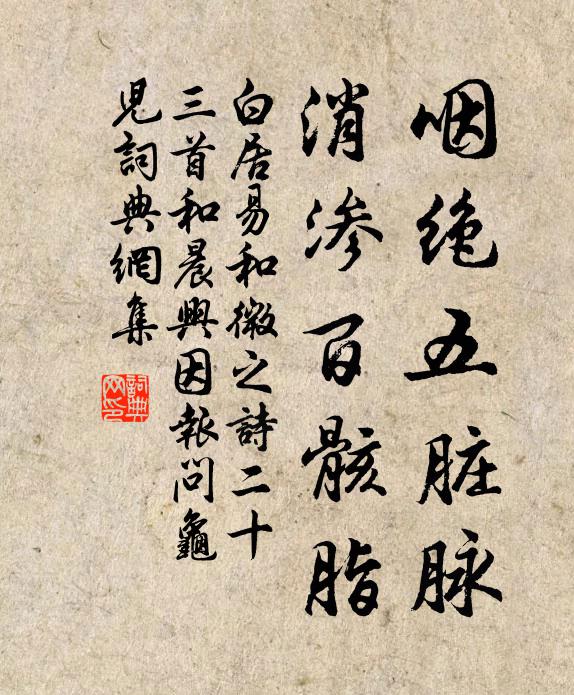 咽绝五脏脉
消渗百骸脂
白居易和微之詩二十
三首和晨興因報問龜
児詞典網集
詞典
网印